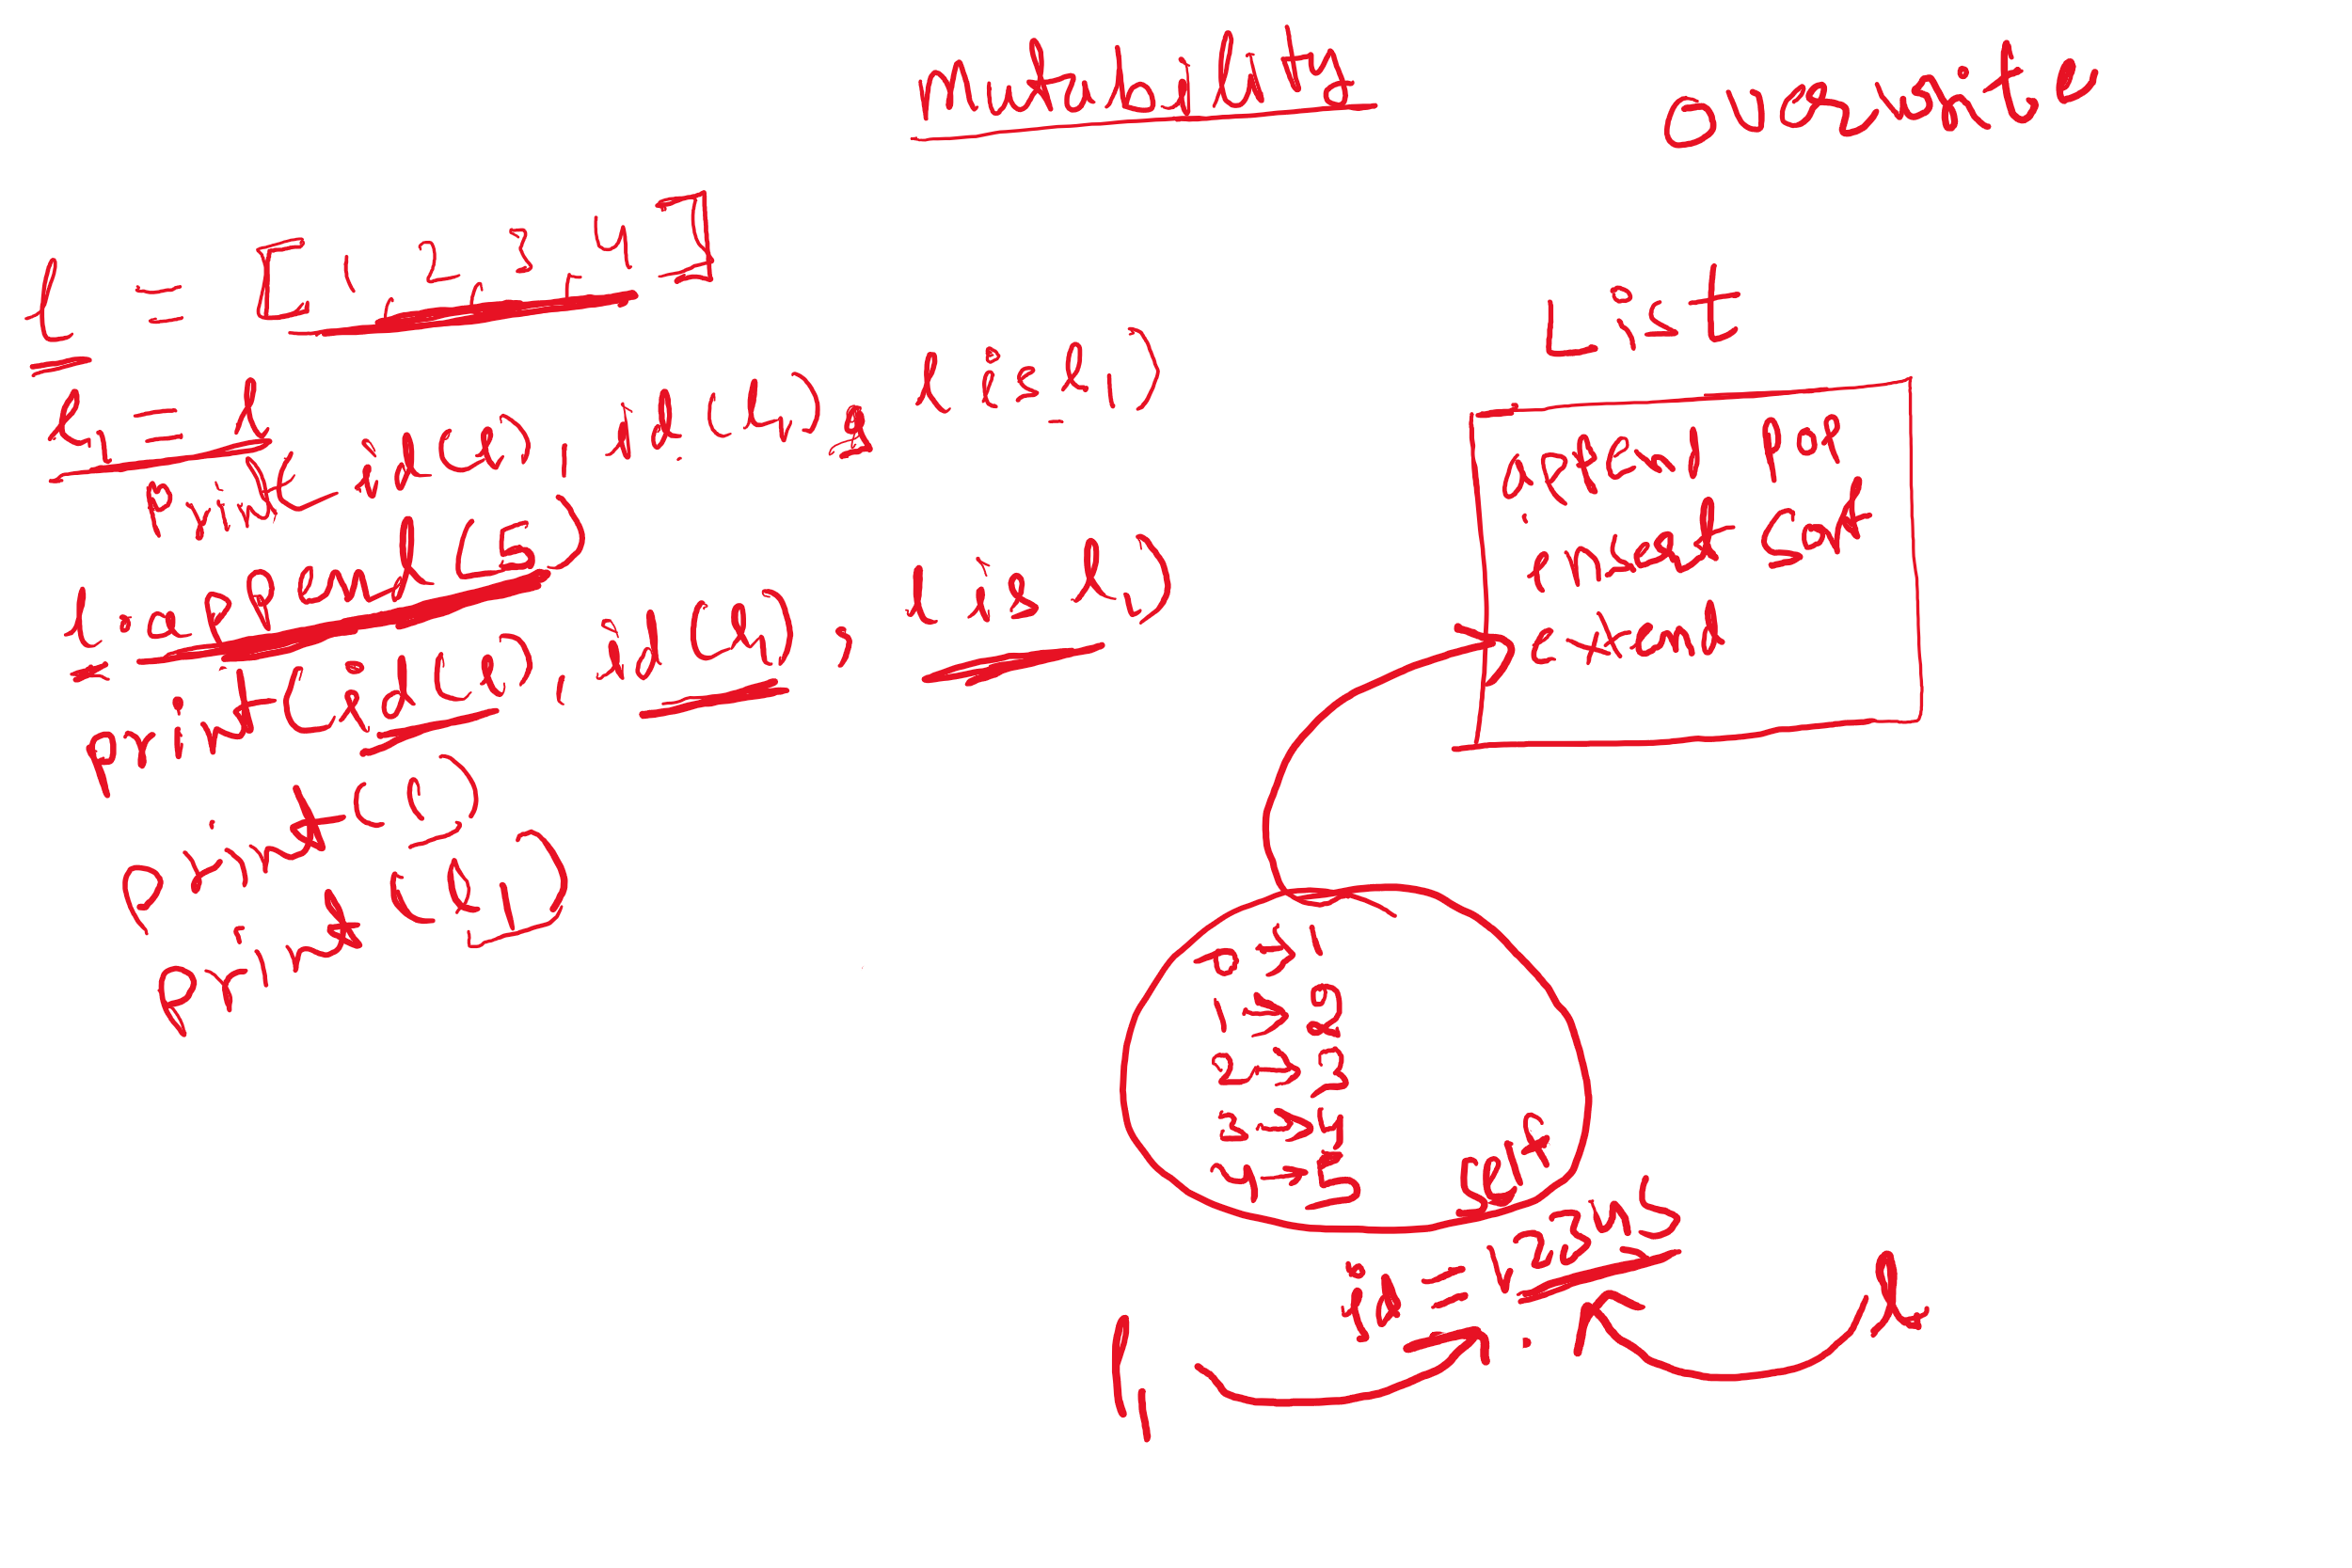 mutability
overwrite
l = [1, 2, 3, 4]
l1 = l
print id(l), id(l1), l is l1)
l.append(5)
print(id(l), id(l1), l is l1)
print(l)
print(l1)
List
append pop
insert sort
extend
0 → 1
1 → 2
2 → 3
3 → 4
4 → 5
self
id = 12345
l1
l